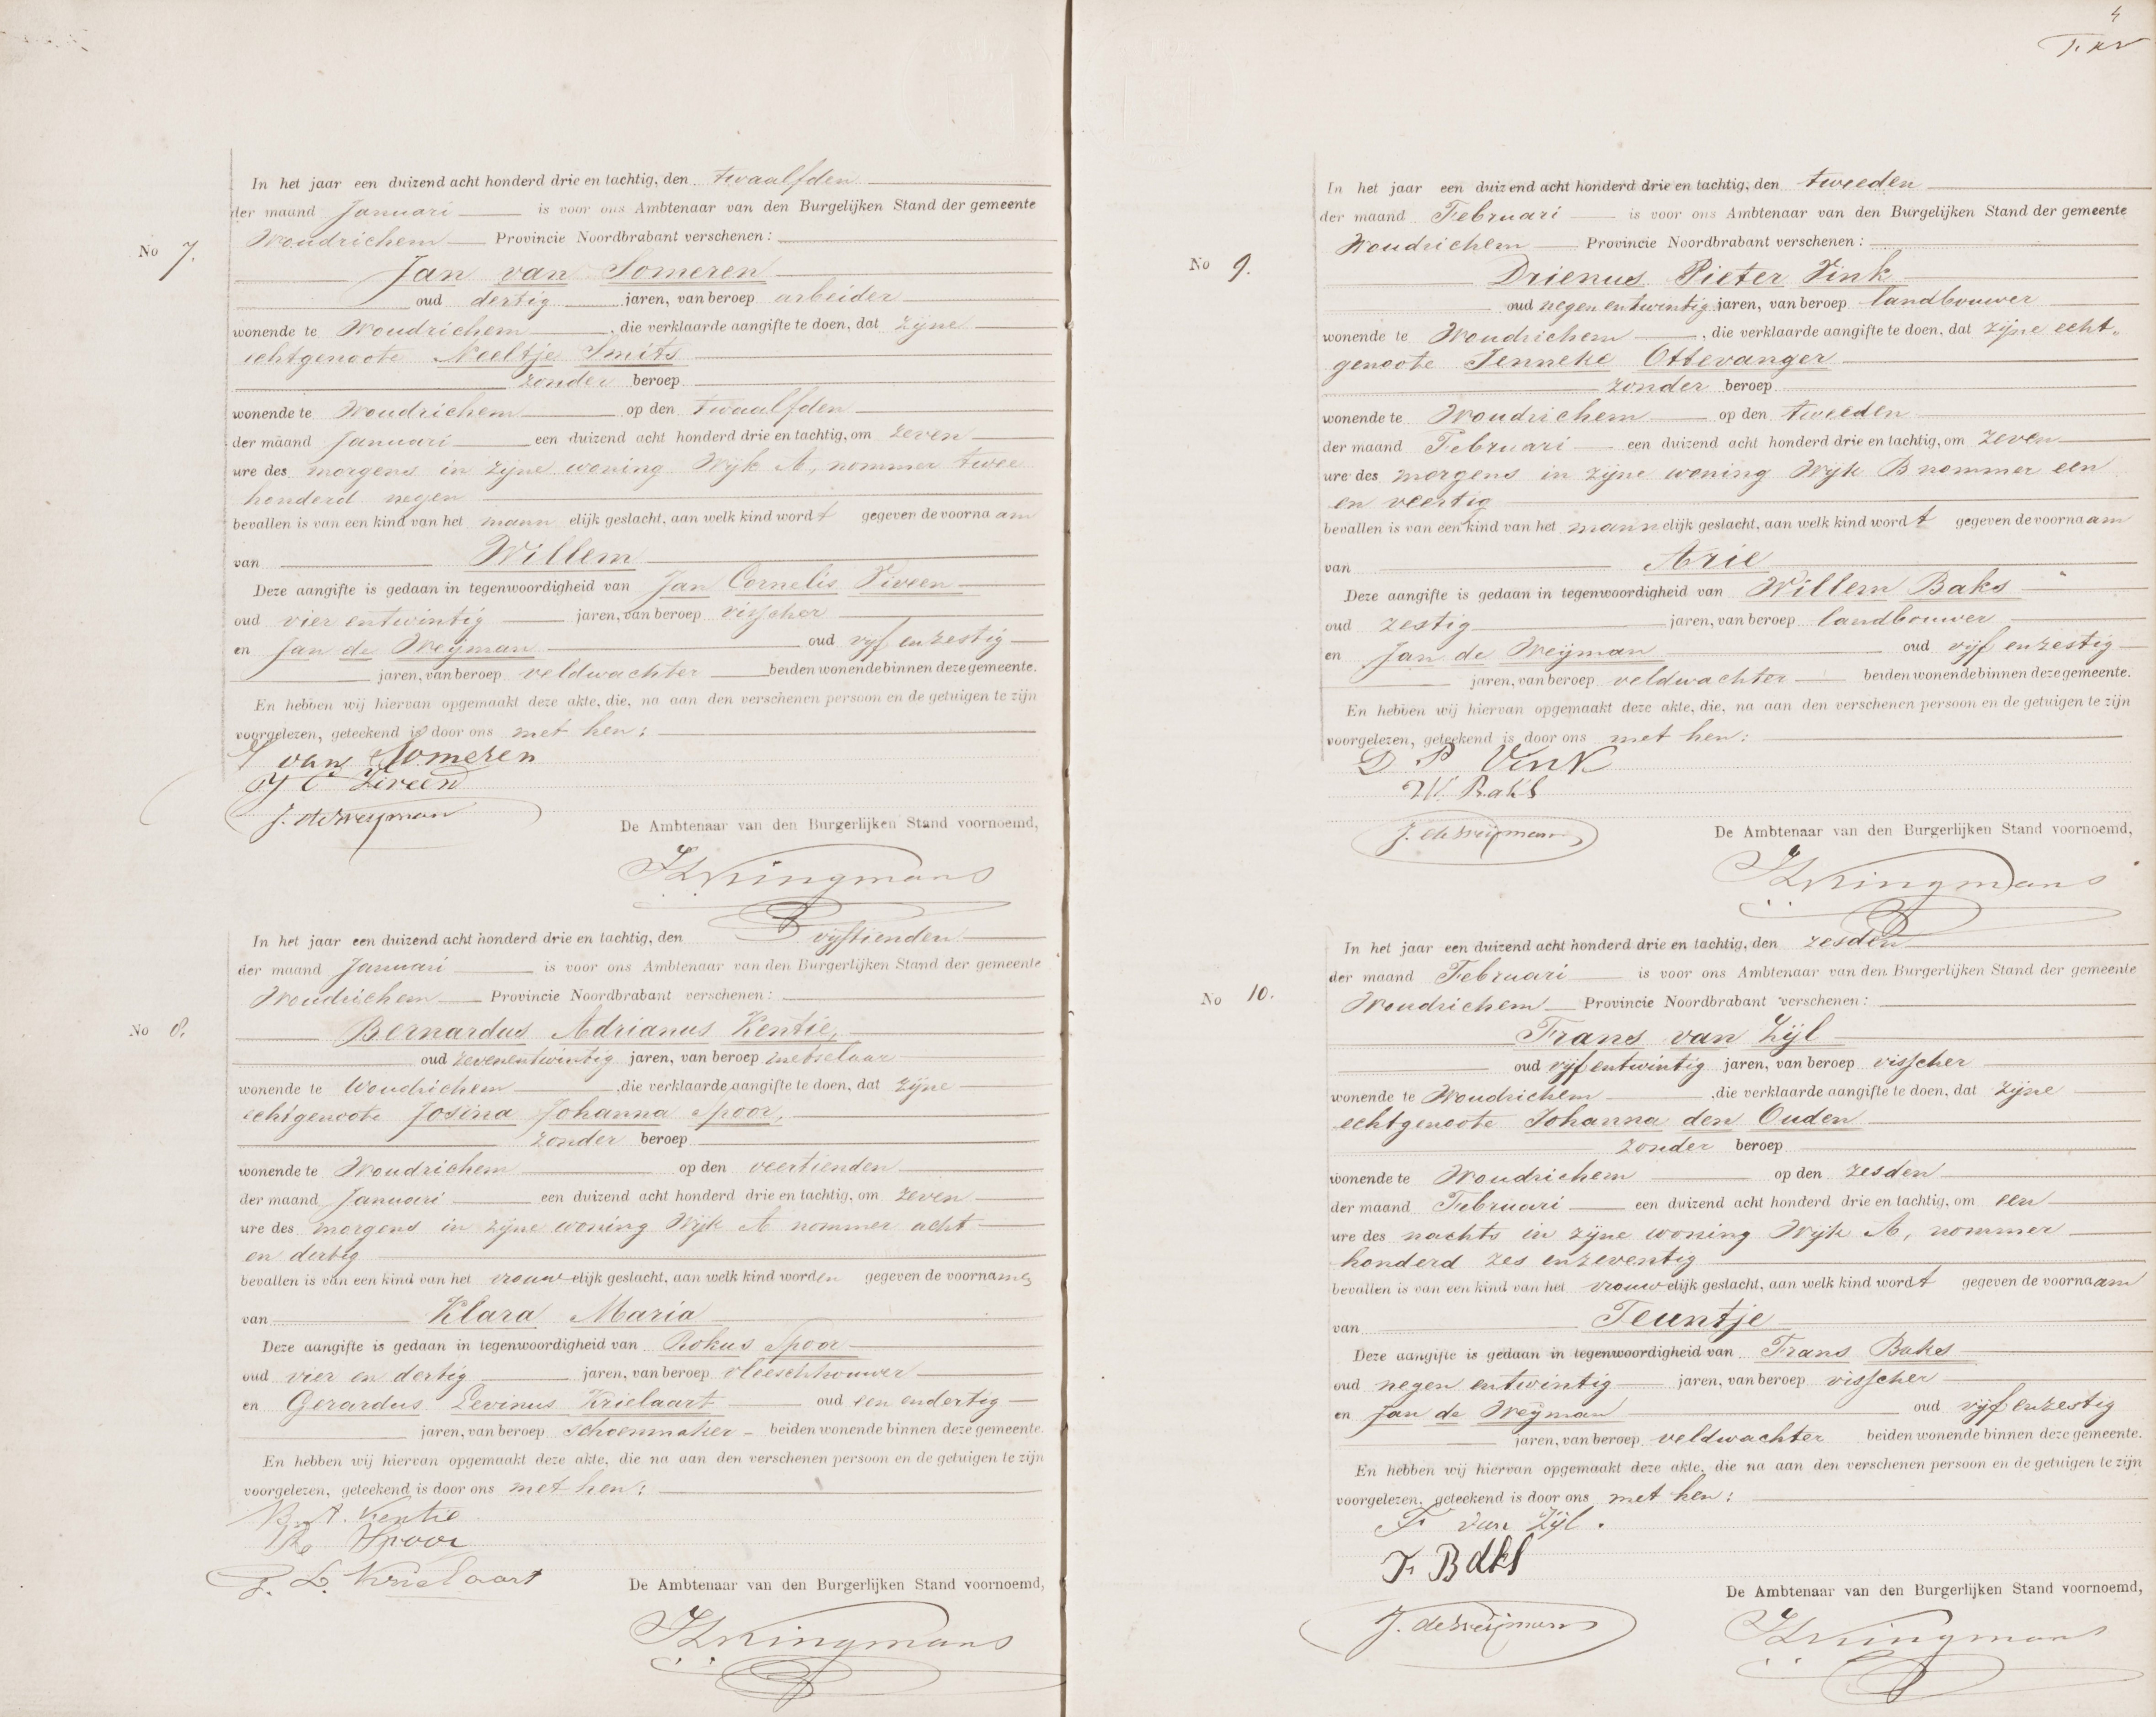 In het jaar een duizend acht honderd drie en tachtig, den twaalfden
der maand Januari is voor ons Ambtenaar van den Burgelijken Stand der gemeente
No 7. Woudrichem Provincie Noordbrabant verschenen:
Jan van Someren
oud dertig jaren, van beroep arbeider
wonende te Woudrichem, die verklaarde aangifte te doen, dat zijne
echtgenoote Neeltje Smits
zonder beroep
wonende te Woudrichem op den twaalfden
der maand Januari een duizend acht honderd drie en tachtig, om zeven
ure des morgens in zijne woning Wijk A, nommer twee
honderd negen
bevallen is van een kind van het mannelijk geslacht, aan welk kind wordt gegeven de voornaam
van Willem
Deze aangifte is gedaan in tegenwoordigheid van Jan Cornelis Viveen
oud vier entwintig jaren, van beroep visscher
en Jan de Weijman oud vijf enzestig
jaren, van beroep veldwachter beiden wonende binnen deze gemeente.
En hebben wij hiervan opgemaakt deze akte, die, na aan den verschenen persoon en de getuigen te zijn
voorgelezen, geteekend is door ons met hen:
van Someren
J C Viveen
J. de Weijman
De Ambtenaar van den Burgerlijken Stand voornoemd,
In het jaar een duizend acht honderd drie en tachtig, den vijftienden
der maand Januari is voor ons Ambtenaar van den Burgerlijken Stand der gemeente
Woudrichem Provincie Noordbrabant verschenen:
No 8. Bernardus Adrianus Kentie,
oud zevenentwintig jaren, van beroep metselaar
wonende te Woudrichem, die verklaarde aangifte te doen, dat zijne
echtgenoote Josina Johanna Spoor,
zonder beroep
wonende te Woudrichem op den veertienden
der maand Januari een duizend acht honderd drie en tachtig, om zeven
ure des morgens in zijne woning Wijk A nommer acht
en dertig
bevallen is van een kind van het vrouwelijk geslacht, aan welk kind worden gegeven de voornamen
van Klara Maria
Deze aangifte is gedaan in tegenwoordigheid van Rokus Spoor
oud vier en dertig jaren, van beroep vleeschhouwer
en Gerardus Levinus Krielaart oud een endertig
jaren, van beroep schoenmaker beiden wonende binnen deze gemeente.
En hebben wij hiervan opgemaakt deze akte, die na aan den verschenen persoon en de getuigen te zijn
voorgelezen, geteekend is door ons met hen:
B. A. Kentie
Spoor
G. L. Krielaart
De Ambtenaar van den Burgerlijken Stand voornoemd,
4
In het jaar een duizend acht honderd drie en tachtig, den tweeden
der maand Februari is voor ons Ambtenaar van den Burgelijken Stand der gemeente
Woudrichem Provincie Noordbrabant verschenen:
No 9. Drienus Pieter Vink
oud negen entwintig jaren, van beroep landbouwer
wonende te Woudrichem, die verklaarde aangifte te doen, dat zijne echt„
genoote Jenneke Ottevanger
zonder beroep
wonende te Woudrichem op den tweeden
der maand Februari een duizend acht honderd drie en tachtig, om zeven
ure des morgens in zijne woning Wijk B nommer een
en veertig
bevallen is van een kind van het mannelijk geslacht, aan welk kind wordt gegeven de voornaam
van Arie
Deze aangifte is gedaan in tegenwoordigheid van Willem Baks
oud zestig jaren, van beroep landbouwer
en Jan de Weijman oud vijf enzestig
jaren, van beroep veldwachter beiden wonende binnen deze gemeente.
En hebben wij hiervan opgemaakt deze akte, die, na aan den verschenen persoon en de getuigen te zijn
voorgelezen, geteekend is door ons met hen:
D P Vink
W. Baks
J. de Weijman
De Ambtenaar van den Burgerlijken Stand voornoemd,
In het jaar een duizend acht honderd drie en tachtig, den zesden
der maand Februari is voor ons Ambtenaar van den Burgerlijken Stand der gemeente
No 10. Woudrichem Provincie Noordbrabant verschenen:
Frans van Zijl
oud vijf entwintig jaren, van beroep visscher
wonende te Woudrichem, die verklaarde aangifte te doen, dat zijne
echtgenoote Johanna den Ouden
zonder beroep
wonende te Woudrichem op den zesden
der maand Februari een duizend acht honderd drie en tachtig, om een
ure des nachts in zijne woning Wijk A, nommer
honderd zes enzeventig
bevallen is van een kind van het vrouwelijk geslacht, aan welk kind wordt gegeven de voornaam
van Teuntje
Deze aangifte is gedaan in tegenwoordigheid van Frans Baks
oud negen entwintig jaren, van beroep visscher
en Jan de Weijman oud vijf enzestig
jaren, van beroep veldwachter beiden wonende binnen deze gemeente.
En hebben wij hiervan opgemaakt deze akte, die na aan den verschenen persoon en de getuigen te zijn
voorgelezen, geteekend is door ons met hen:
F van Zijl.
F Baks
J. de Weijman
De Ambtenaar van den Burgerlijken Stand voornoemd,